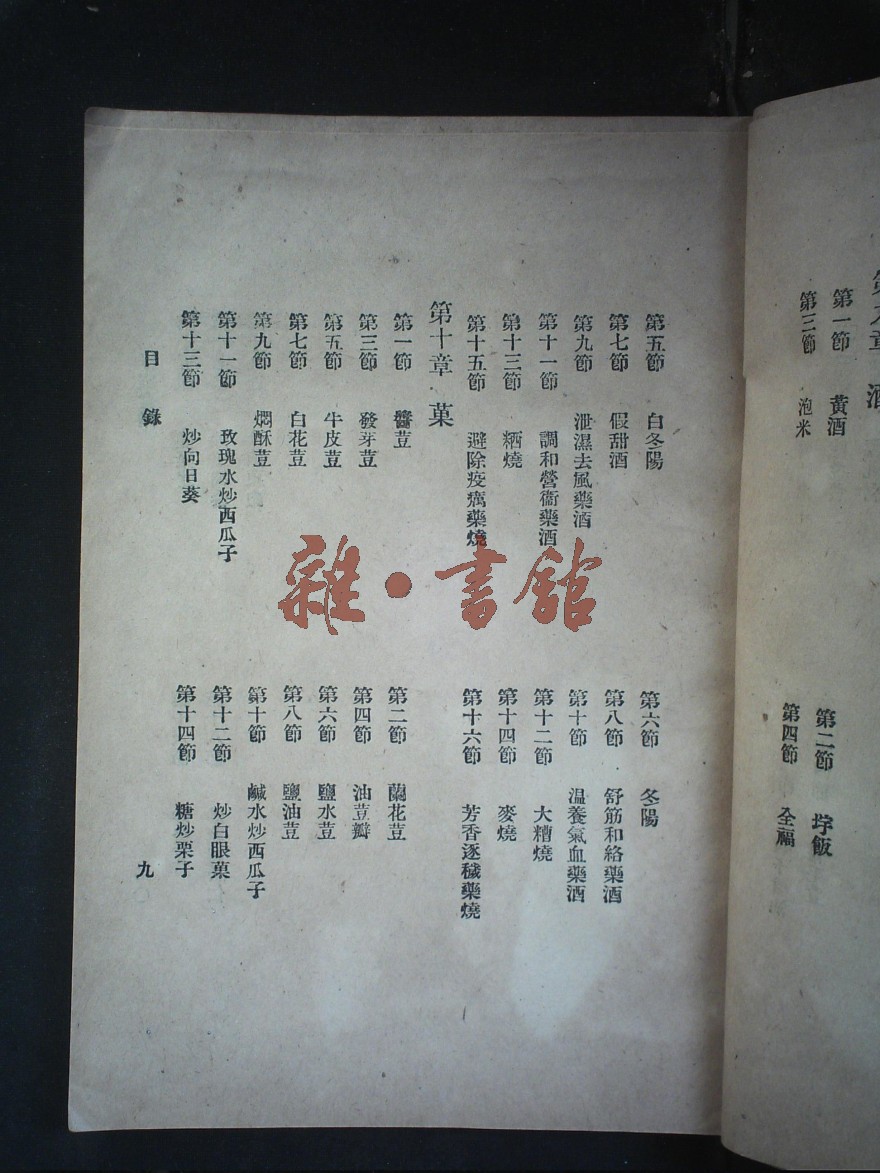 第九章 酒
第一節 黃酒
第二節 垶飯
第三節 泡米
第四節 全福
第五節 白冬陽
第六節 冬陽
第七節 假甜酒
第八節 舒筋和絡藥酒
第九節 泄濕去風藥酒
第十節 温養氣血藥酒
第十一節 調和營衞藥酒
第十二節 大糟燒
第十三節 粞燒
第十四節 麥燒
第十五節 避除疫癘藥燒
第十六節 芳香逐穢藥燒
第十章 菓
第一節 醬荳
第二節 蘭花荳
第三節 發芽荳
第四節 油荳瓣
第五節 牛皮荳
第六節 鹽水荳
第七節 白花荳
第八節 鹽油荳
第九節 燜酥荳
第十節 鹹水炒西瓜子
第十一節 玫瑰水炒西瓜子
第十二節 炒白眼菓
第十三節 炒向日葵
第十四節 糖炒栗子
目錄
九
雜·書館